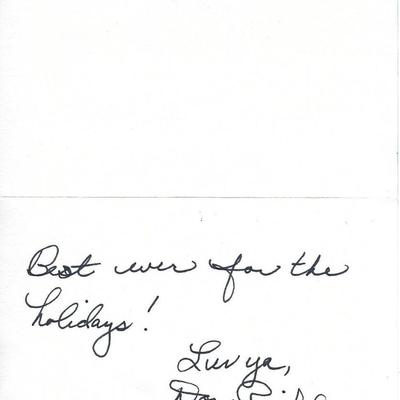 Best ever for the
holidays!
Luv ya,